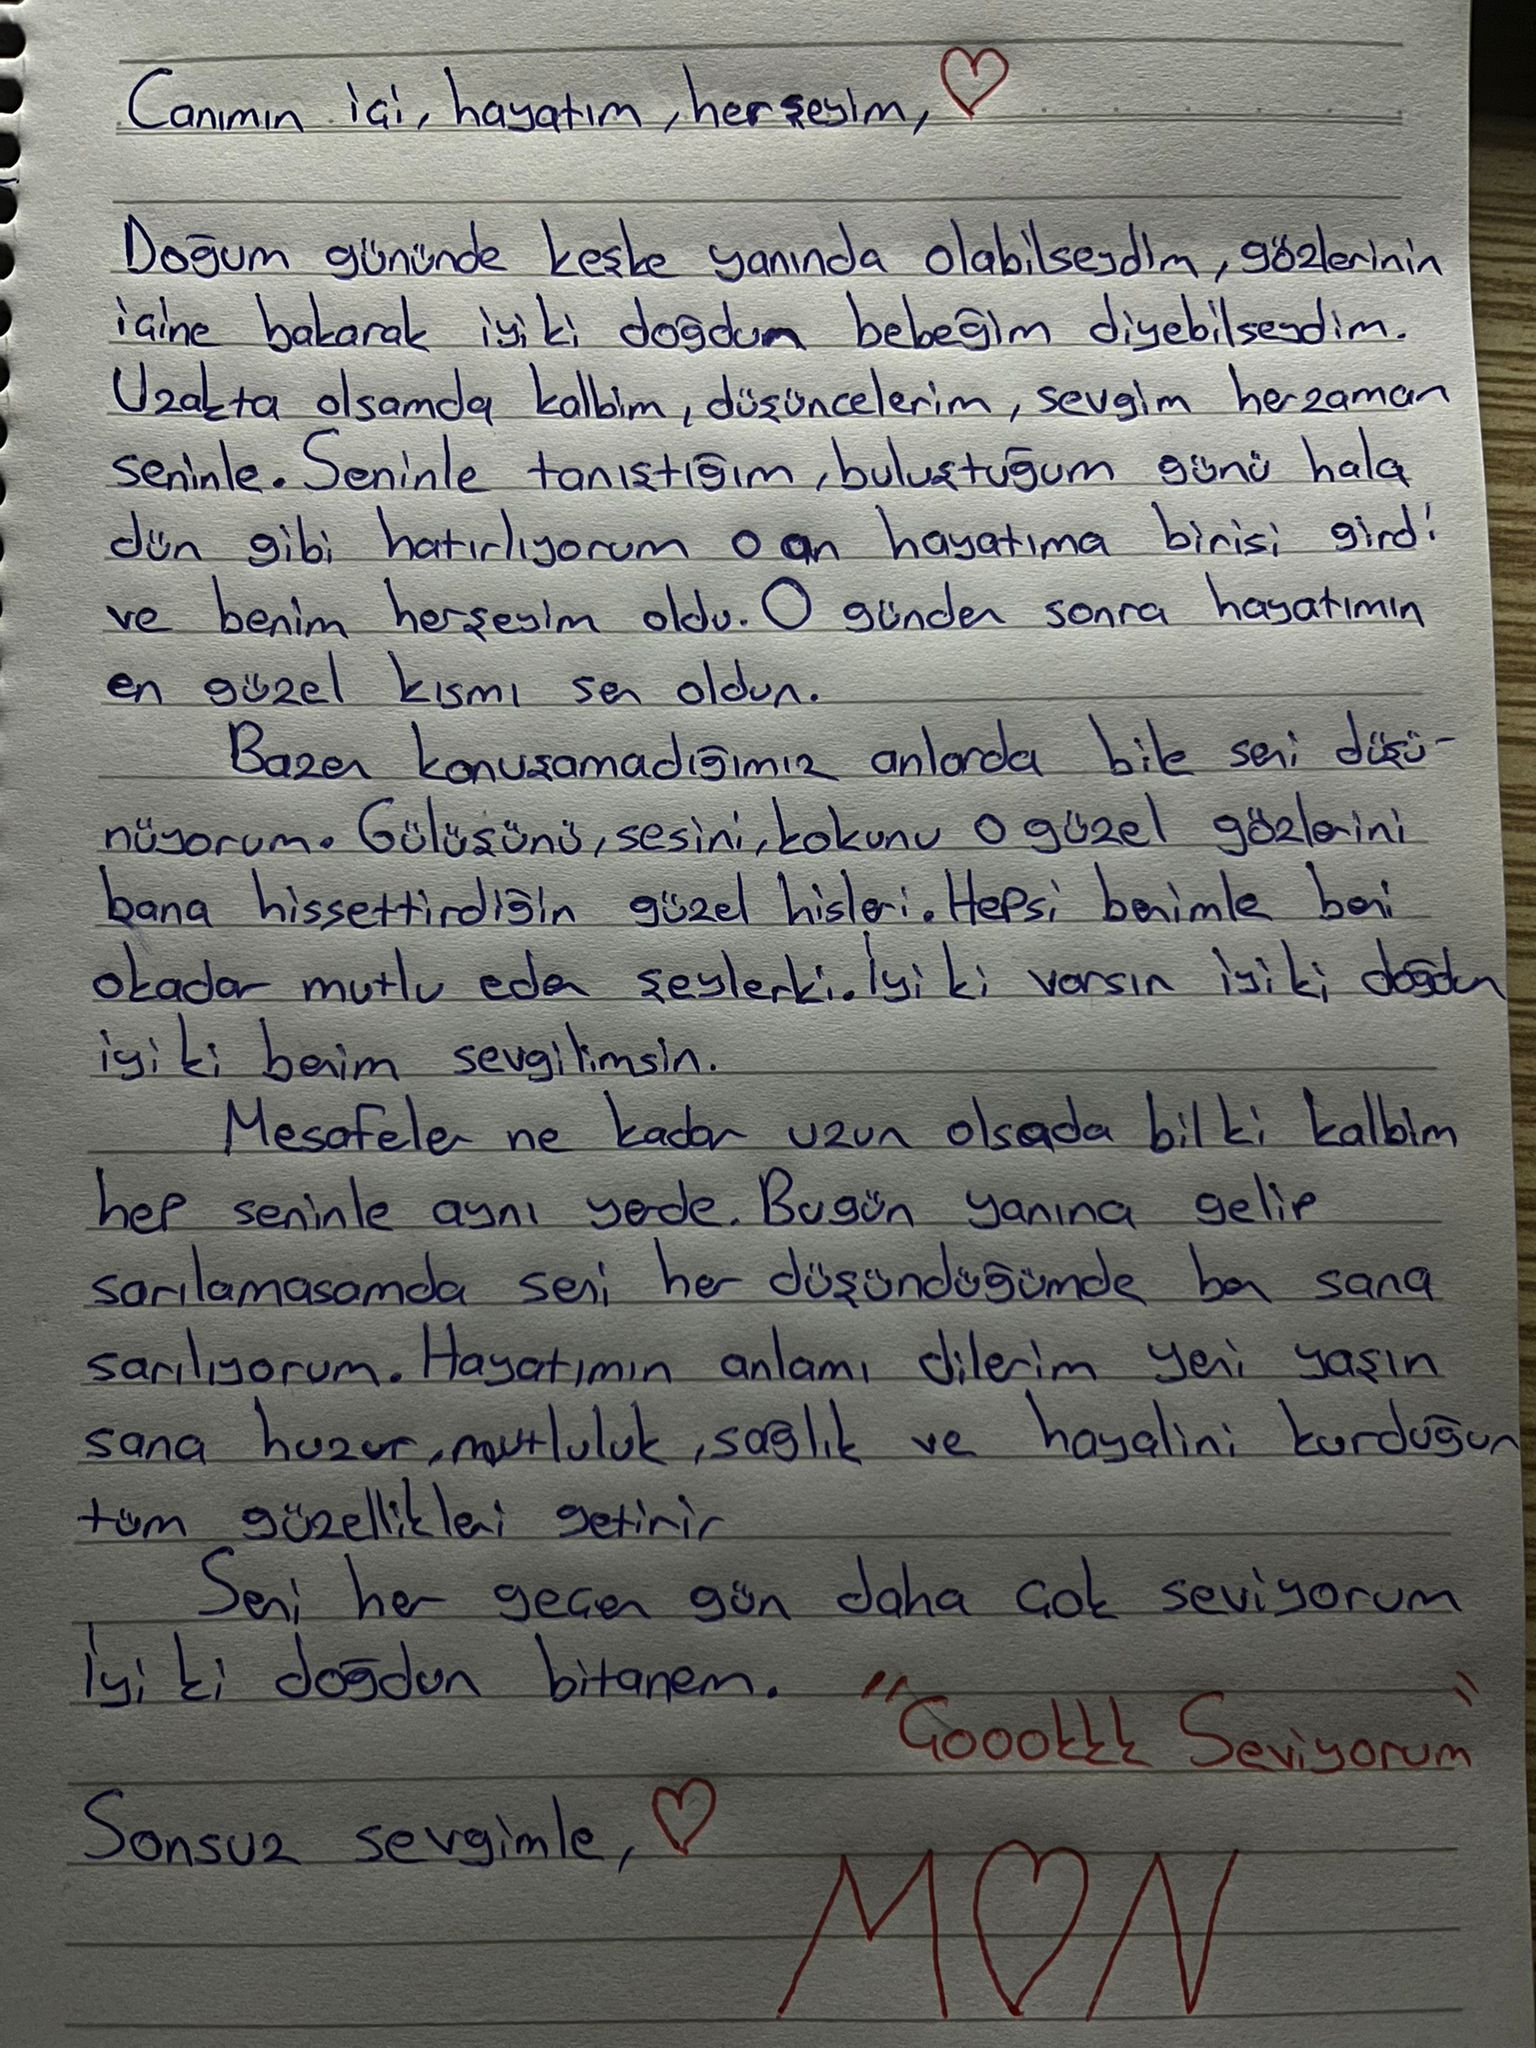 Canımın içi, hayatım, herşeyim, ♡
Doğum gününde keşke yanında olabilseydim, gözlerinin
içine bakarak iyi ki doğdun bebeğim diyebilseydim.
Uzakta olsamda kalbim, düşüncelerim, sevgim herzaman
seninle. Seninle tanıştığım, buluştuğum günü hala
dün gibi hatırlıyorum o an hayatıma birisi girdi
ve benim herşeyim oldu. O günden sonra hayatımın
en güzel kısmı sen oldun.
Bazen konuşamadığımız anlarda bile seni düşü-
nüyorum. Gülüşünü, sesini, kokunu o güzel gözlerini
bana hissettirdiğin güzel hisleri. Hepsi benimle beni
okadar mutlu eden şeylerki. İyi ki varsın iyi ki doğdun
iyi ki benim sevgilimsin.
Mesafeler ne kadar uzun olsada bil ki kalbim
hep seninle aynı yerde. Bugün yanına gelip
sarılamasamda seni her düşündüğümde ben sana
sarılıyorum. Hayatımın anlamı dilerim yeni yaşın
sana huzur, mutluluk, sağlık ve hayalini kurduğun
tüm güzellikleri getirir
Seni her geçen gün daha çok seviyorum
İyi ki doğdun bitanem.
"Çoookkk Seviyorum"
Sonsuz sevgimle, ♡
M♡N